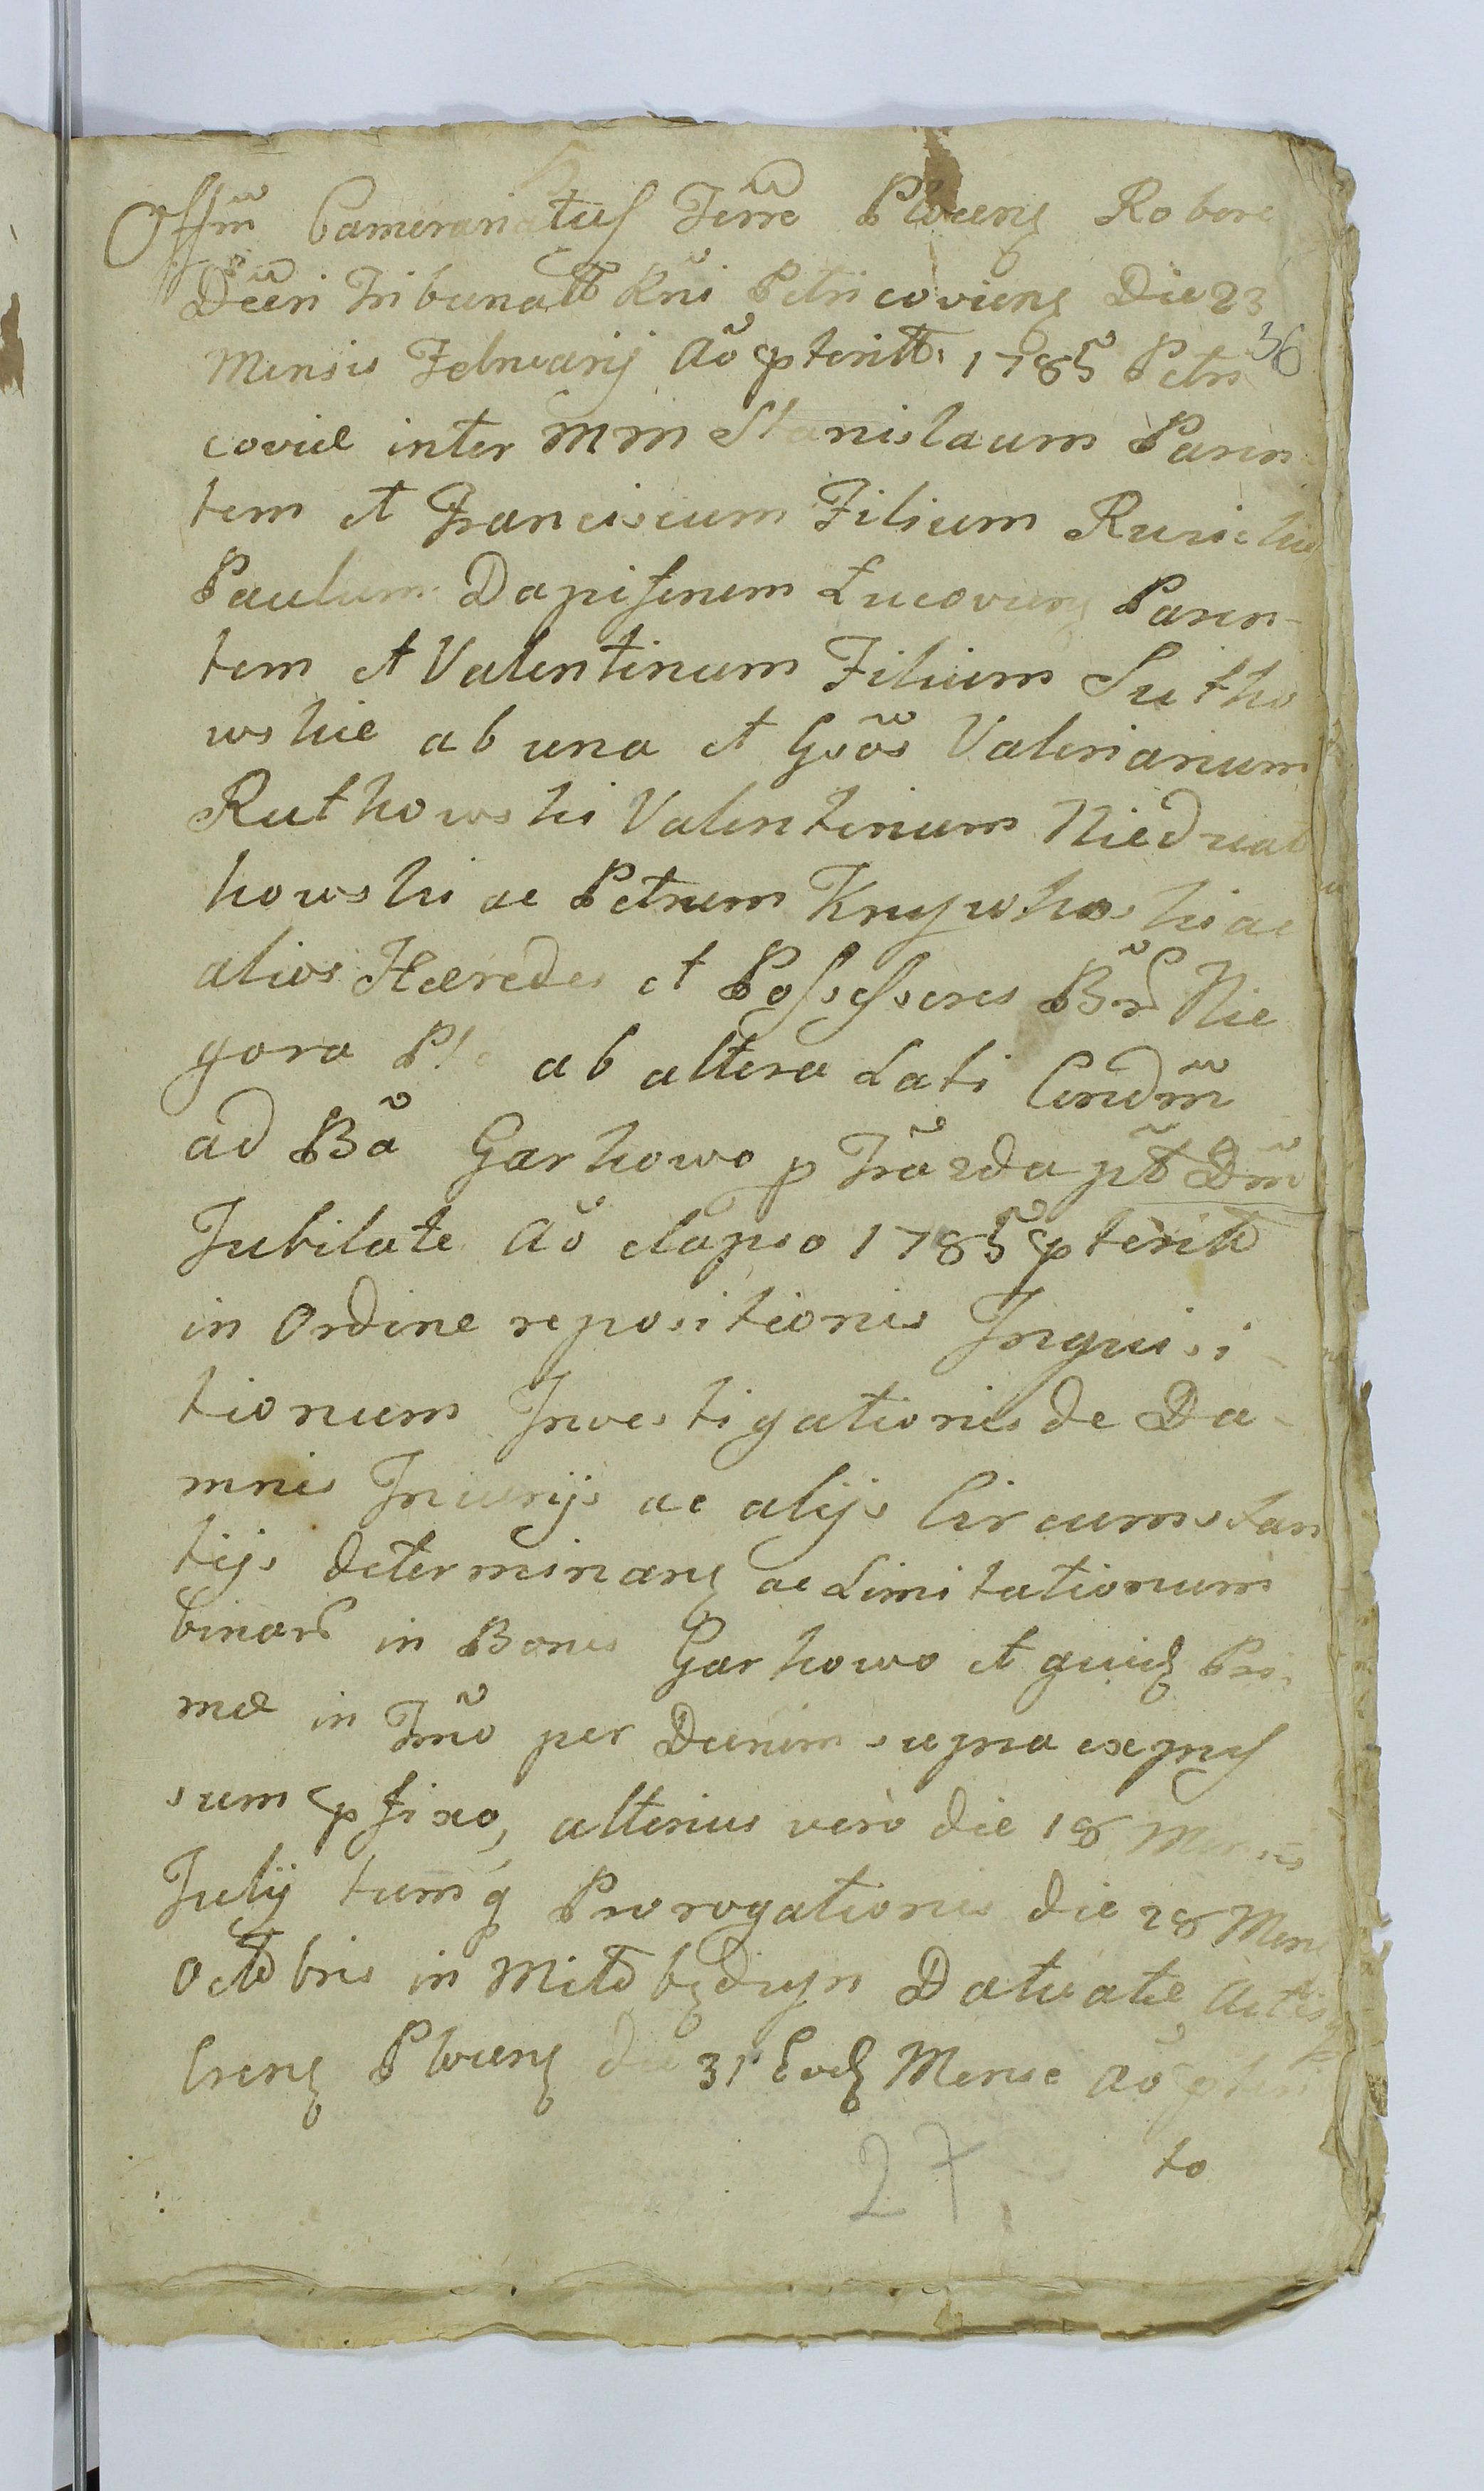 Offm̃ Camerariatus Terre Plocens Robore
Decri Tribunalt Rni Petricoviens Die 23
Mensis Februarij Aõ pterit: 1785 Petri
36
coviæ inter MM Stanislaum Paren
tem et Franciscum Filium
Paulum Dapiferum Lucoviens Paren-
tem et Valentinum Filium Sutko
wskie ab una et Gsõs Valerianum
Rutkowski Valentinum Niedrial
kowski ac Petrum Krzywkoski ac
alios Hæredes et Possessores Bŕ Nie
gora ab altera Lati Condm̃
ad Bã Garkowo p Trã 2da pt̃ Dm̃
Jubilate Aõ elapso 1785 pterito
in Ordine repositionis Inquisi-
tionum Investigationis de Da-
mnis Iniurijs ac alijs Circumstan
tijs determinans ac Limitationum
binar in Bonis Garkowo et quids Pri
mæ in Tmõ per Decrum supra expres
sum pfixo, alterius vero die 18 Mensis
Julij tum q Prorogationis die 28 Mens
Octobris in Mito bzdzyn Datuatæ Actis q
Crens Plocens die 31 Eods Mense Aõ pteri
to
27